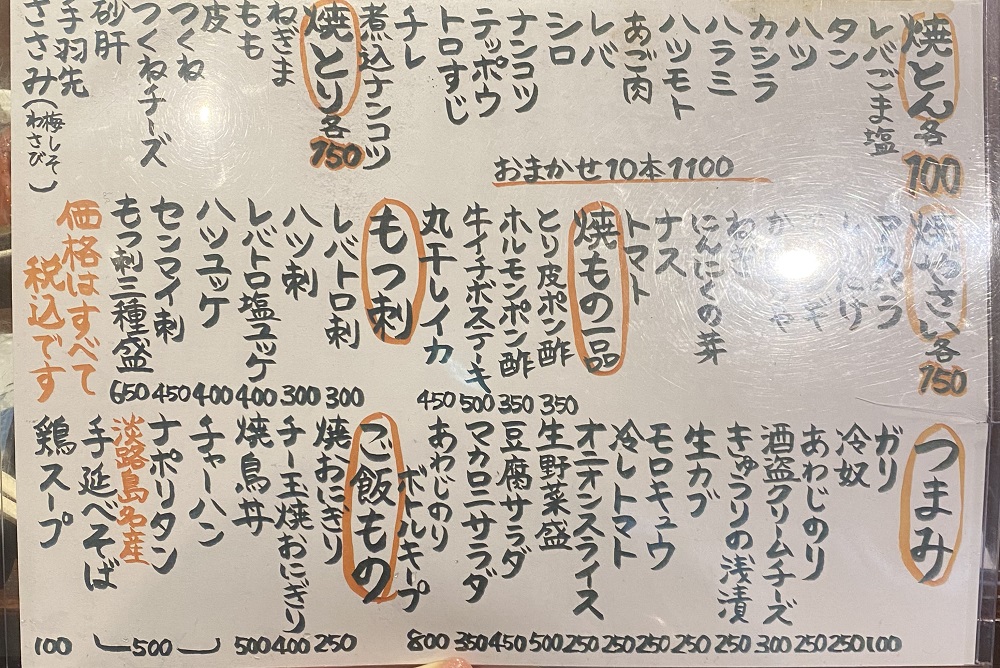 焼とん各100
レバごま塩
タン
ハツ
カシラ
ハラミ
ハツモト
あご肉
レバ
シロ
ナンコツ
テッポウ
トロすじ
チレ
煮込ナンコツ
焼とり各150
ねぎま
もも
皮
つくね
つくねチーズ
砂肝
手羽先
ささみ(梅しそ わさび)
おまかせ10本1100
焼やさい各150
アスパラ
ねぎ
にんにくの芽
ナス
トマト
焼もの一品
とり皮ポン酢 350
ホルモンポン酢 350
牛イチボステーキ 500
丸干しイカ 450
もつ刺
レバトロ刺 300
ハツ刺 300
レバトロ塩ユッケ 400
ハツユッケ 400
センマイ刺 450
もつ刺三種盛 650
価格はすべて
税込です
つまみ
ガリ 100
冷奴 250
あわじのり 250
酒盗クリームチーズ 300
きゅうりの浅漬 250
生カブ 250
モロキュウ 250
冷しトマト 250
オニオンスライス 250
生野菜盛 500
豆腐サラダ 450
マカロニサラダ 350
あわじのり
ボトルキープ 800
ご飯もの
焼おにぎり 250
チー玉焼おにぎり 400
焼鳥丼 500
チャーハン
ナポリタン
淡路島名産
手延べそば
500
鶏スープ 100